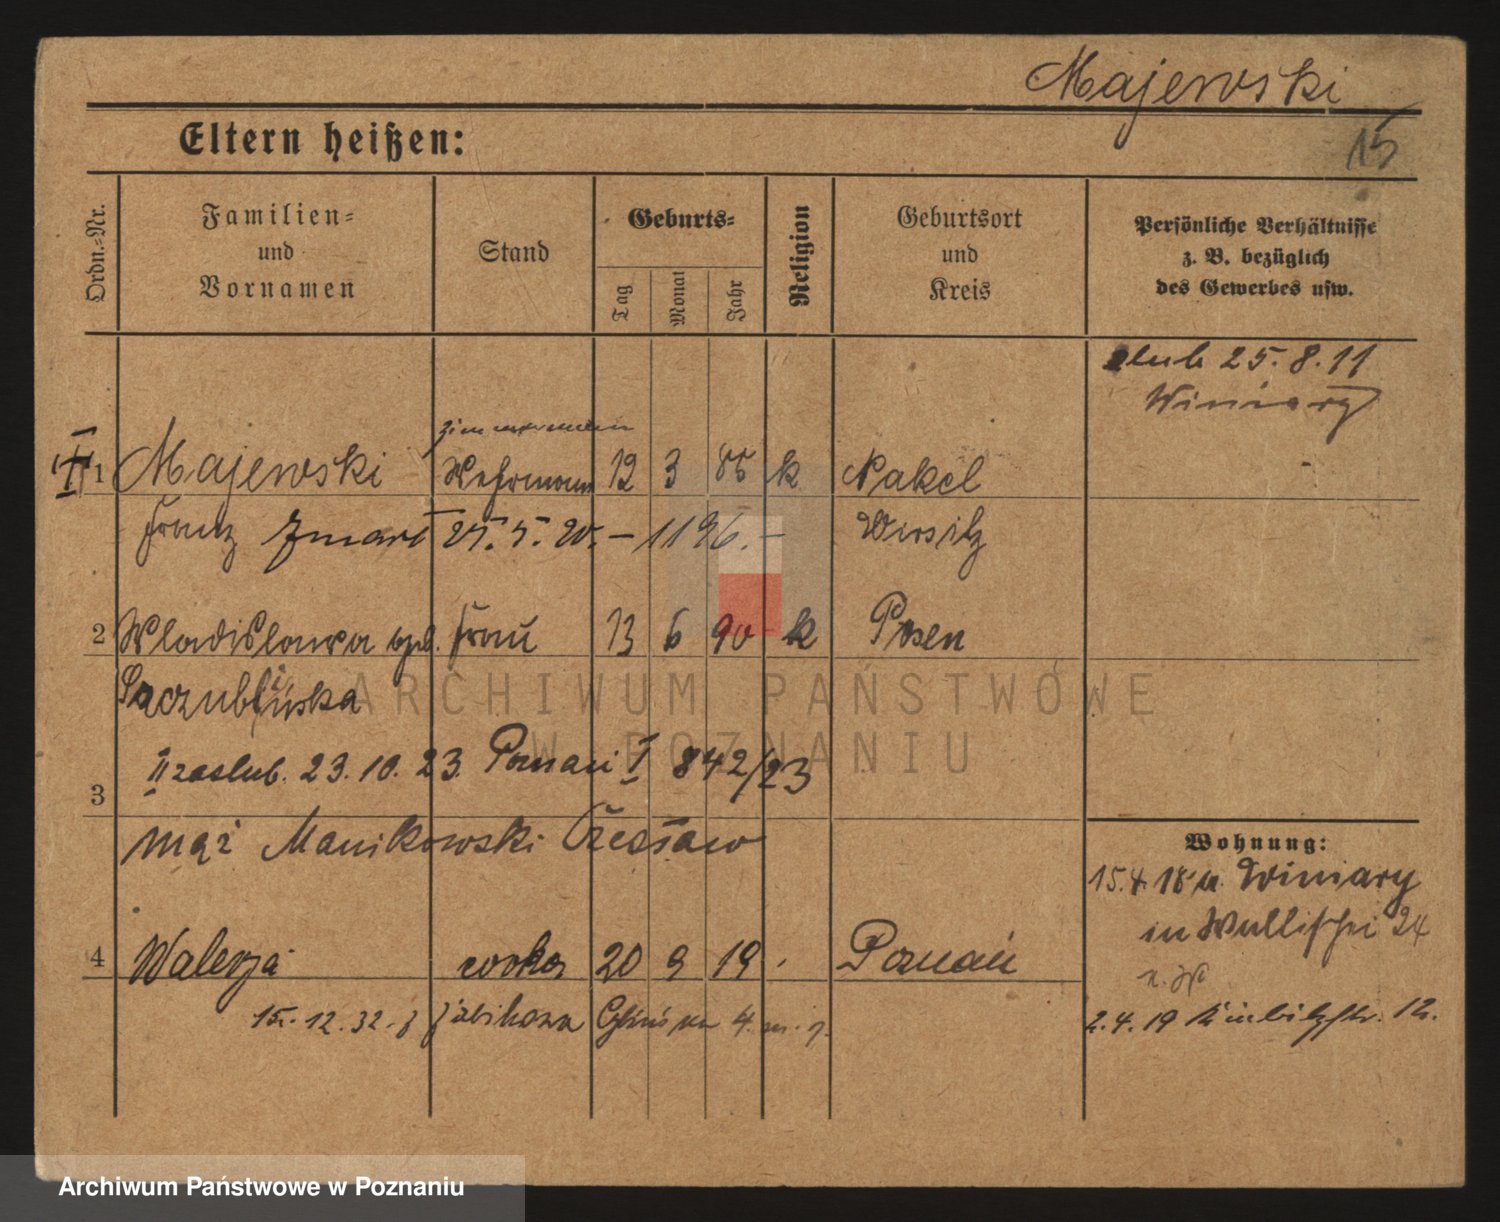 Majewski
15
Eltern heißen:
Ordn.-Nr.
Familien-
und
Vornamen
Stand
Geburts-
Tag
Monat
Jahr
Religion
Geburtsort
und
Kreis
Persönliche Verhältnisse
z. B. bezüglich
des Gewerbes usw.
slub 25. 8. 11
Winiary
Zimmermann
I 1 Majewski Wehrmann 12 3 86 k Nakel
Franz zmarł 25. 5. 20. – 1196. – Wirsitz
2 Wladislawa geb. Frau 13 6 90 k Posen
II zaslub. 23. 10. 23. Poznań I 842/23
3
mąż Manikowski Czesław
Wohnung:
15.4.18 v. Winiary
in Wallischei 24
4 Walerja córka 20 9 19 . Poznań
15. 12. 32 - z Żabikowa
2.4.19
ARCHIWUM PAŃSTWOWE
W POZNANIU
Archiwum Państwowe w Poznaniu